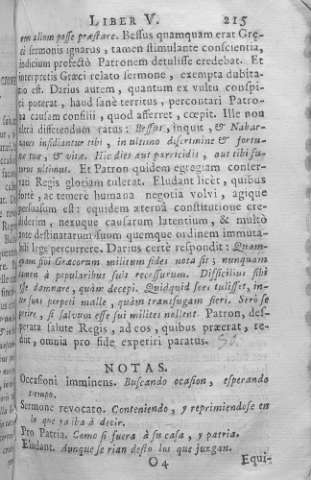 LIBER V. 215
em alium posse præstare. Bessus quamquam erat Græ-
ci sermonis ignarus, tamen stimulante conscientia,
indicium profectò Patronem detulisse credebat. Et
interpretis Græci relato sermone, exempta dubita-
tio est. Darius autem, quantum ex vultu conspi-
ci poterat, haud sanè territus, percontari Patro-
na causam consilii, quod afferret, cœpit. Ille non
ultrà differendum ratus: Bessus, inquit, & Nabar-
zanes insidiantur tibi, in ultimo discrimine & fortu-
næ tuæ, & vitæ. Hic dies aut parricidis, aut tibi fu-
turus ultimus. Et Patron quidem egregiam conser-
vati Regis gloriam tulerat. Eludant licèt, quibus
fortè, ac temerè humana negotia volvi, agique
persuasum est: equidem æterna constitutione cre-
diderim, nexuque causarum latentium, & multò
ante destinatarum suum quemque ordinem immuta-
bili lege percurrere. Darius certè respondit: Quam-
quam sibi Græcorum militum fides nota sit; nunquam
tamen à popularibus suis recessurum. Difficilius sibi
esse damnare, quàm decepi. Quidquid fors tulisset, in-
ter suos perpeti malle, quàm transfugam fieri. Serò se
perire, si salvum esse sui milites nollent. Patron, des-
perata salute Regis, ad eos, quibus præerat, re-
dit, omnia pro fide experiri paratus.
NOTAS.
Occasioni imminens. Buscando ocasion, esperando
tiempo.
Sermone revocato. Conteniendo, y reprimiendose en
lo que ya iba à decir.
Pro Patria. Como si fuera à su casa, y patria.
Eludant. Aunque se rian desto los que juzgan.
O 4 Equi-